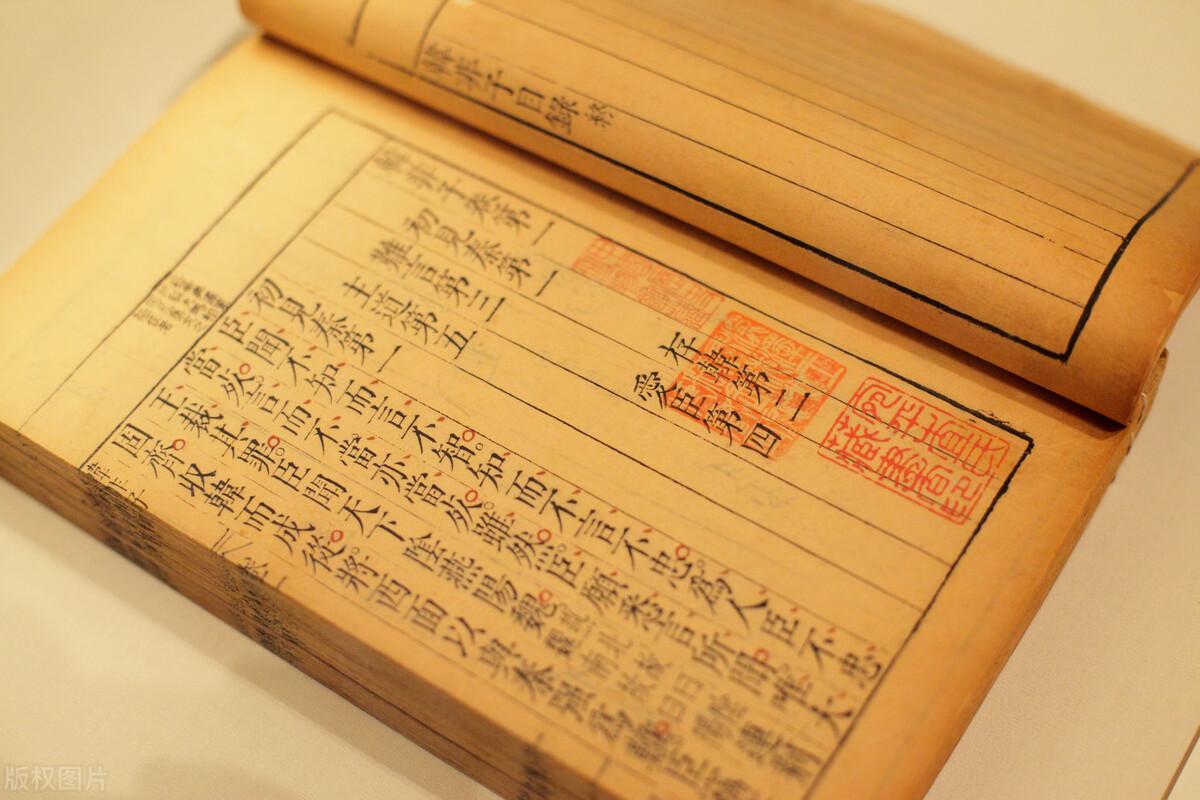 韓非子目錄終
宛平查氏
藏書記
韓非子卷第一
初見秦第一 存韓第二
難言第三 愛臣第四
主道第五
初見秦第一
臣聞不知而言不智知而不言不忠為人臣不忠
當死言而不當亦當死雖然臣願悉言所聞唯大
王裁其罪臣聞天下陰燕陽魏 連荊
固齊收韓而成從將西面以與秦強為難臣
韓非子
版权图片